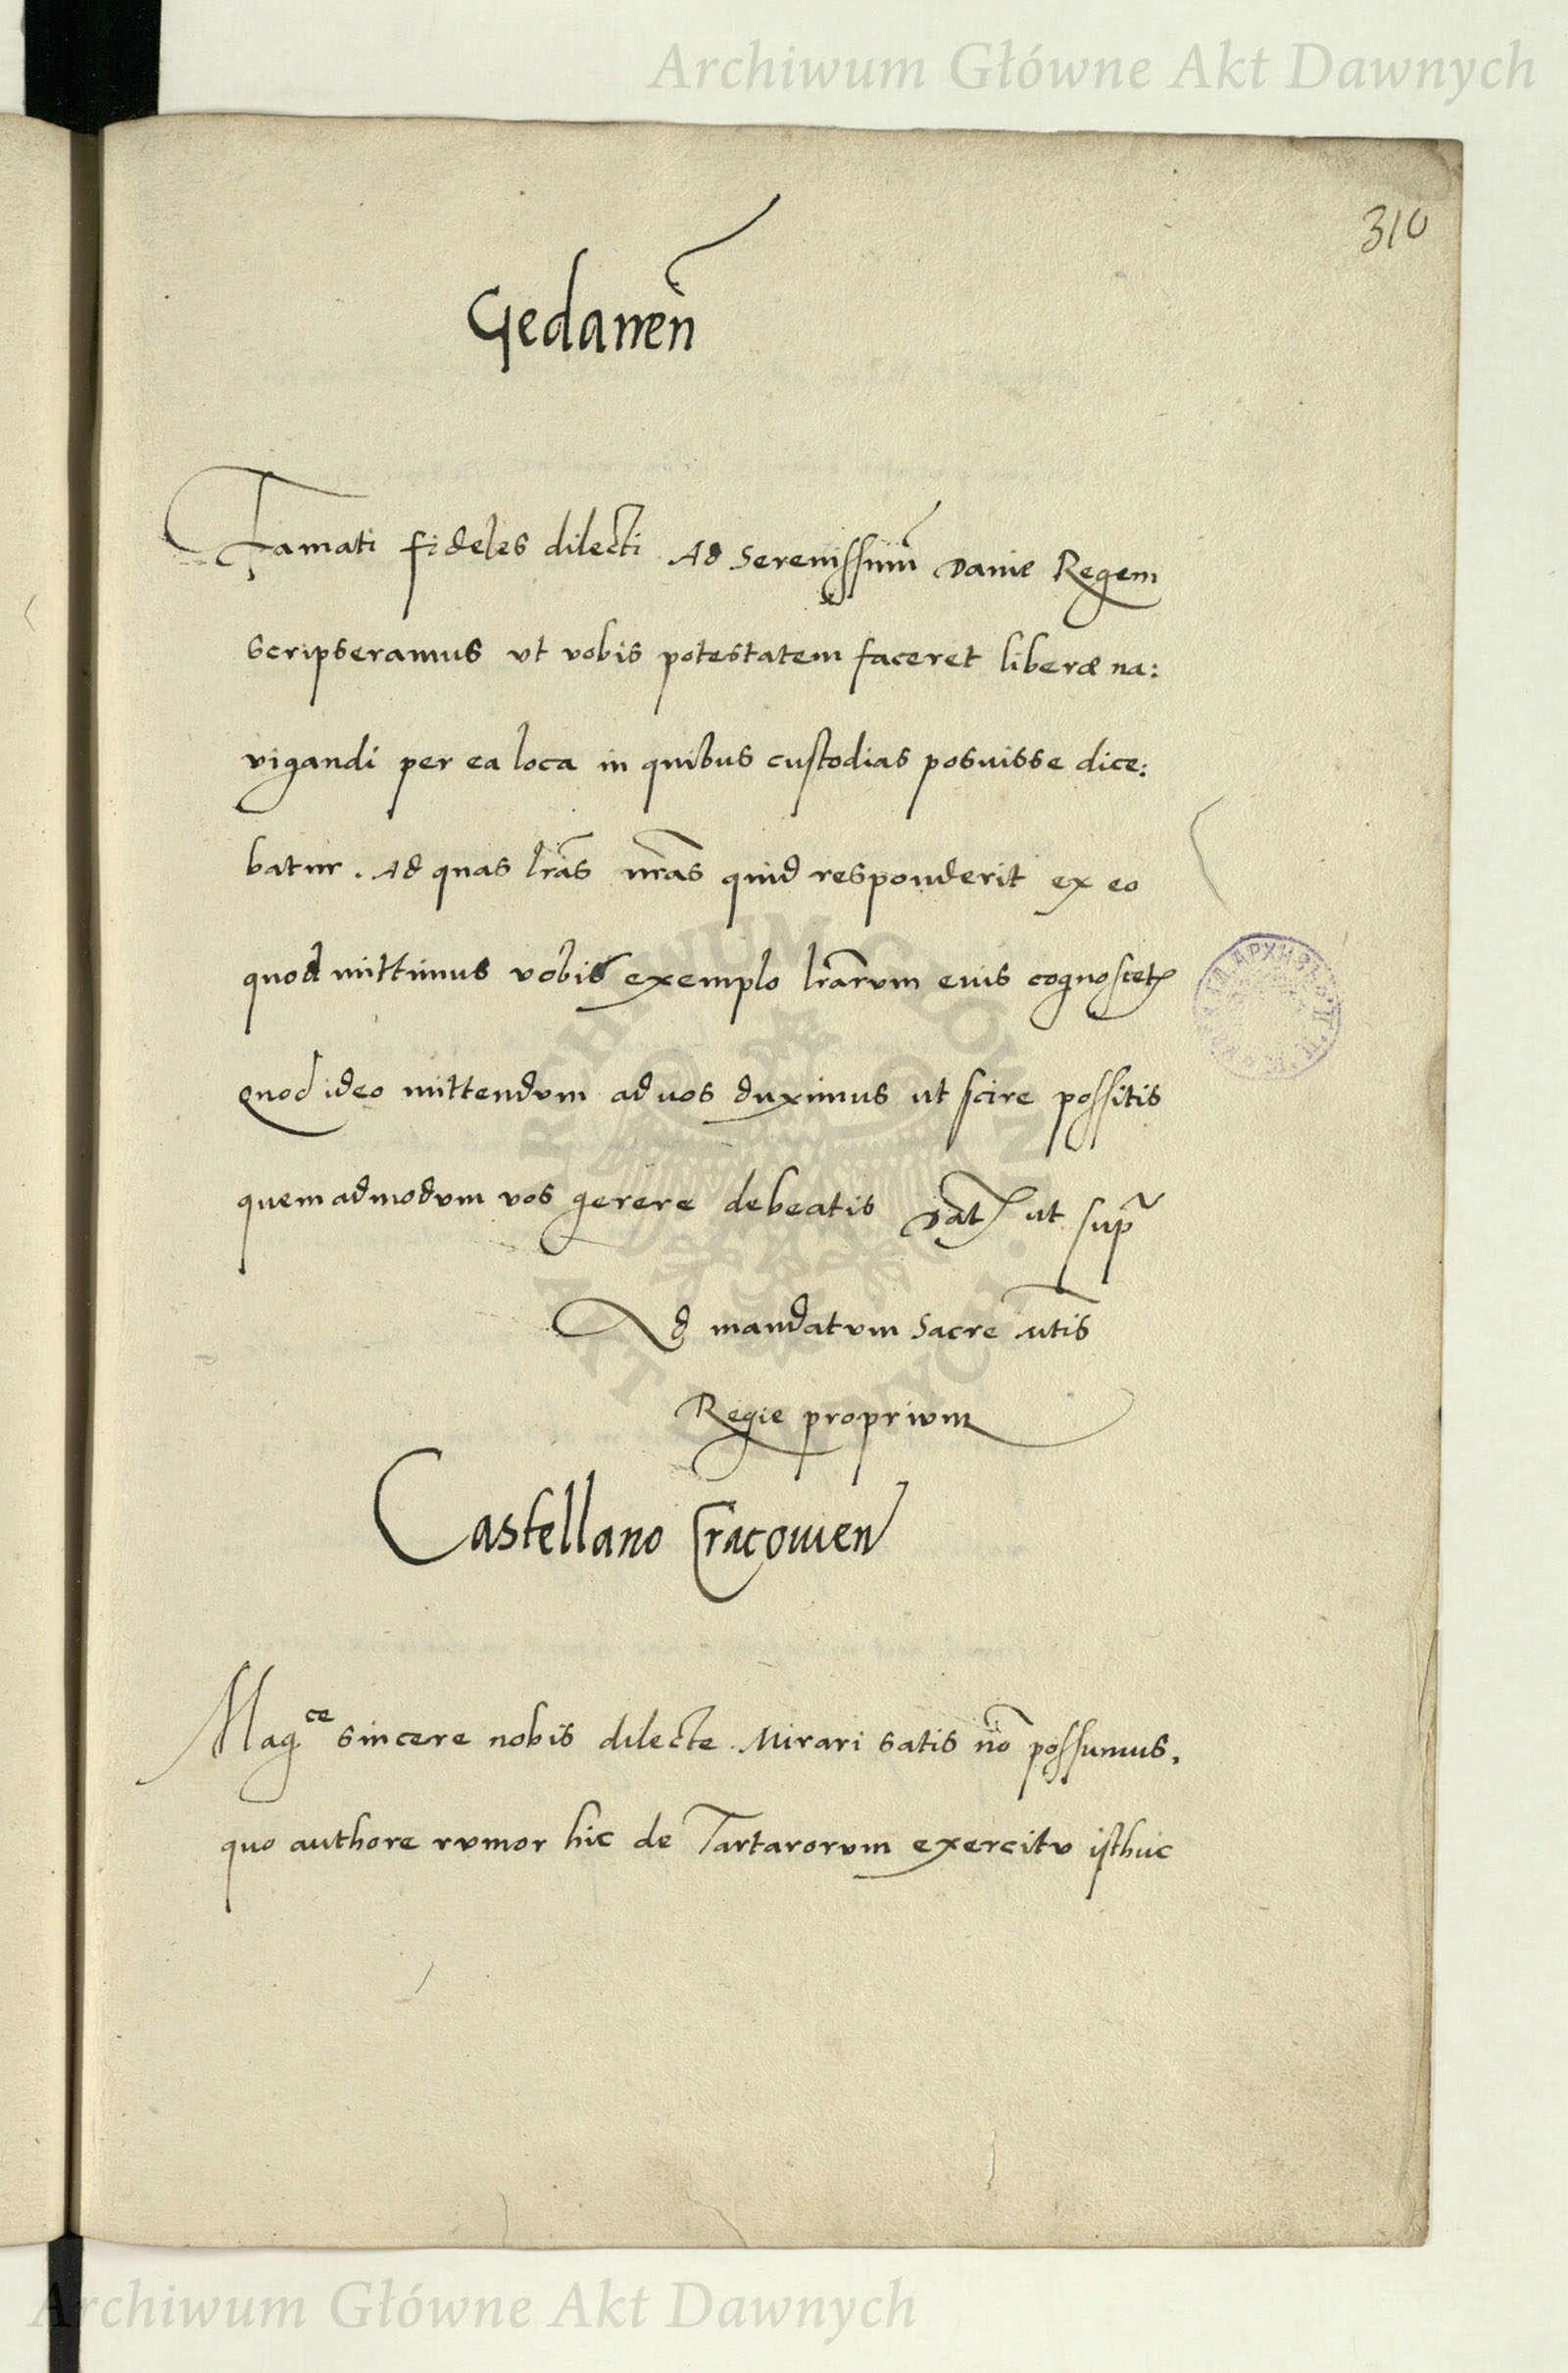 Archiwum Główne Akt Dawnych
310
Gedanen̄
Famati fideles dilecti Ad Serenissimū Danie Regem
scripseramus vt vobis potestatem faceret liberæ na:
vigandi per ea loca in quibus custodias posuisse dice:
batur. Ad quas lr̄as nr̄as quid responderit ex eo
quod mittimus vobis exemplo lr̄arvm euis cognoscetꝭ
Quod ideo mittendvm ad uos duximus ut scire possitis
quemadmodvm vos gerere debeatis Datꝭ ut supᷓ
Ad mandatvm Sacre Mt̄is
Regie proprivm
Castellano Cracouien
Magce sincere nobis dilecte. Mirari satis nō possumus,
quo authore rvmor hic de Tartarorvm exercitv isthuc
ARCHIWUM GŁÓWNE
AKT DAWNYCH
Archiwum Główne Akt Dawnych